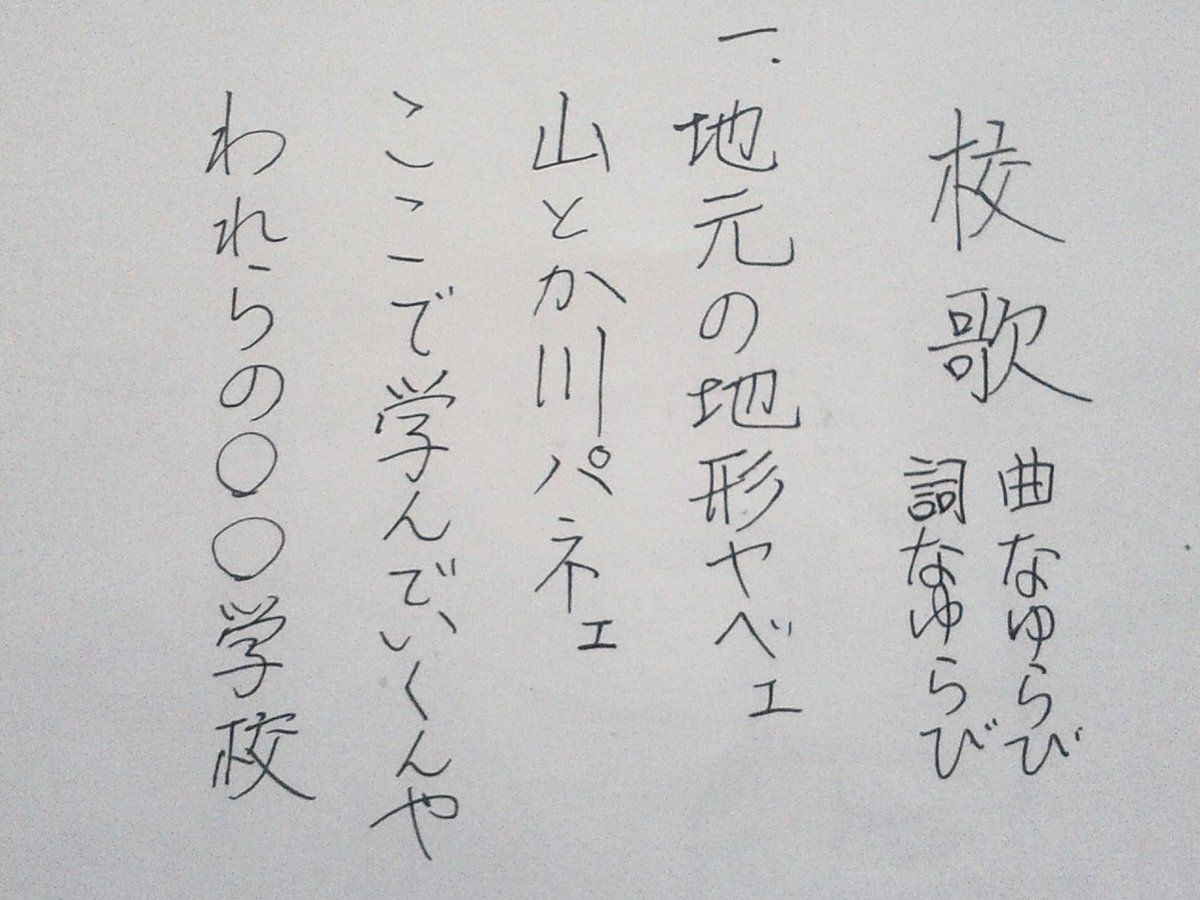 校歌
曲なゆらび
詞なゆらび
一.地元の地形ヤベェ
山とか川パネェ
ここで学んでいくんや
われらの〇〇学校